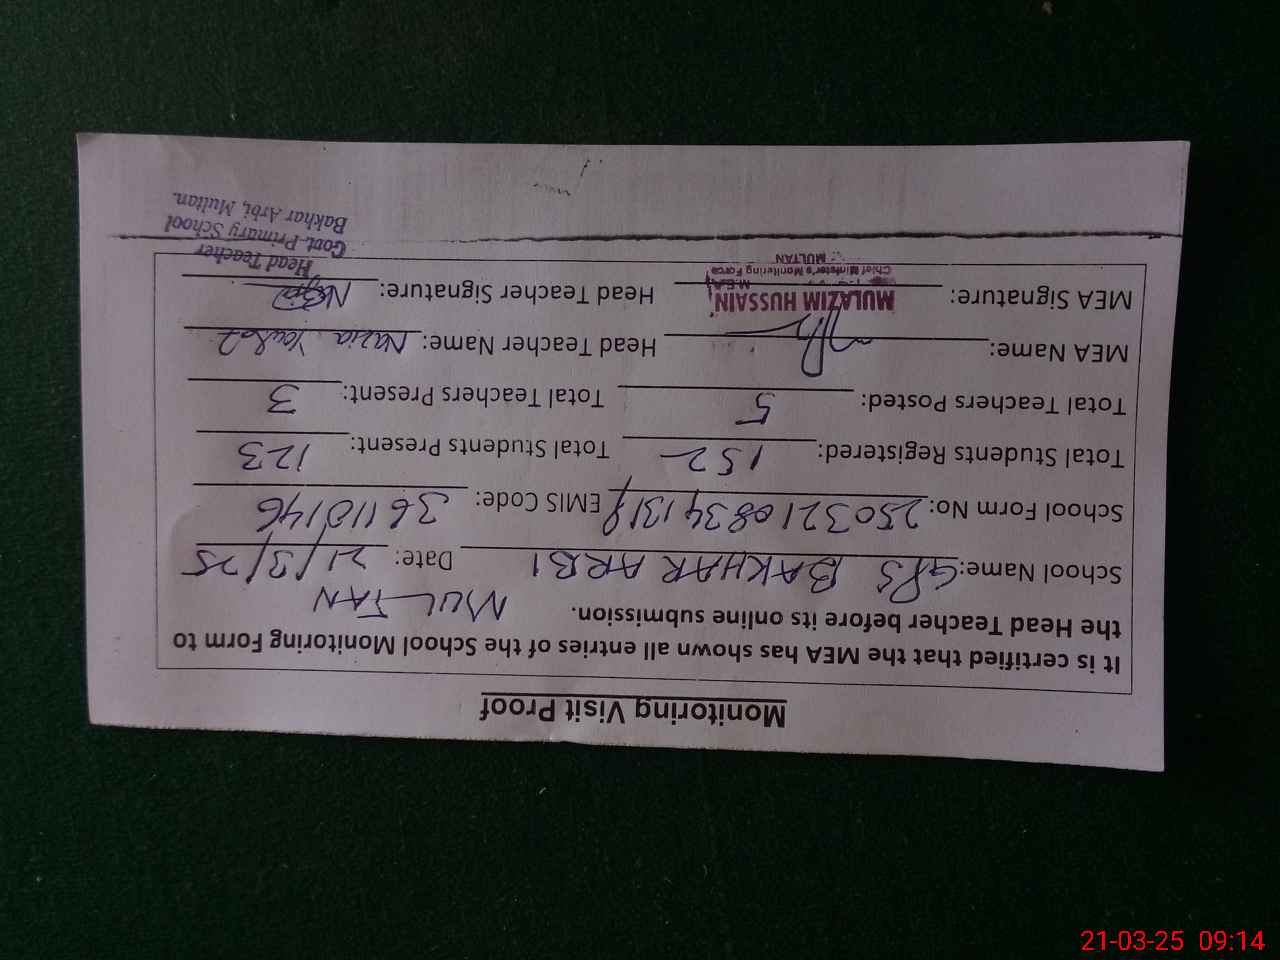 Monitoring Visit Proof
It is certified that the MEA has shown all entries of the School Monitoring Form to
the Head Teacher before its online submission. MULTAN
School Name: GPS BAKHAR ARBI Date: 21/3/25
School Form No: EMIS Code: 36110146
Total Students Registered: 152 Total Students Present: 123
Total Teachers Posted: 5 Total Teachers Present: 3
MEA Name: Head Teacher Name: Nazia
MEA Signature: Head Teacher Signature:
MULAZIM HUSSAIN
M.E.A
Chief Minister's Monitoring Force
MULTAN
Head Teacher
Govt. Primary School
Bakhar Arbi, Multan.
21-03-25 09:14